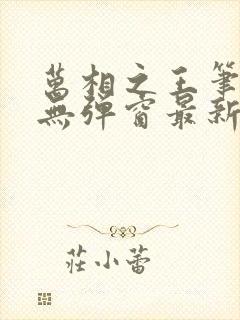 萬相之王筆
無彈窗最新
莊小蕾